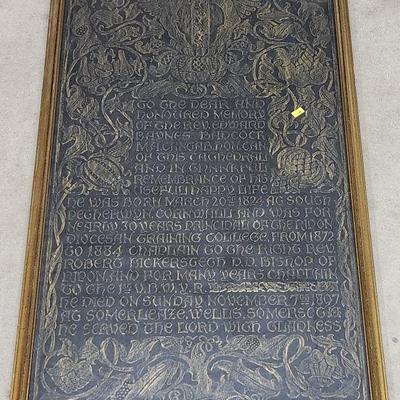 TO THE DEAR AND
HONOURED MEMORY
OF THE REV. EDWARD
BAYNES BADCOCK
M.A. CANTAB. HON. CAN.
OF THIS CATHEDRAL
AND IN THANKFUL
REMEMBRANCE OF HIS
USEFUL HAPPY LIFE
HE WAS BORN MARCH 20TH 1824 AT SOUTH
PETHERWYN, CORNWALL AND WAS FOR
NEARLY 30 YEARS PRINCIPAL OF THE RIPON
DIOCESAN TRAINING COLLEGE, FROM 1872
TO 1884 CHAPLAIN TO THE RIGHT REV.
ROBERT BICKERSTETH D.D. BISHOP OF
RIPON AND FOR MANY YEARS CHAPLAIN
TO THE 1ST V.B.W.Y.R.
HE DIED ON SUNDAY NOVEMBER 7TH 1897
AT SOMERLEAZE, WELLS, SOMERSET
HE SERVED THE LORD WITH GLADNESS